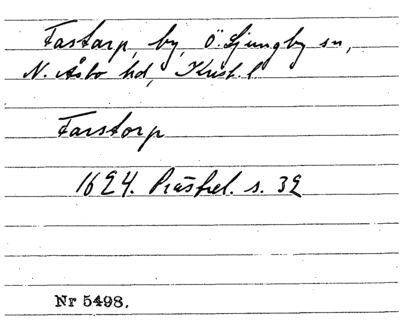 Fastarp, by, Ö. Ljungby sn,
N. Åsbo hd, Krist. l
Farstorp
1624. Prästrel. s. 32
Nr 5498.